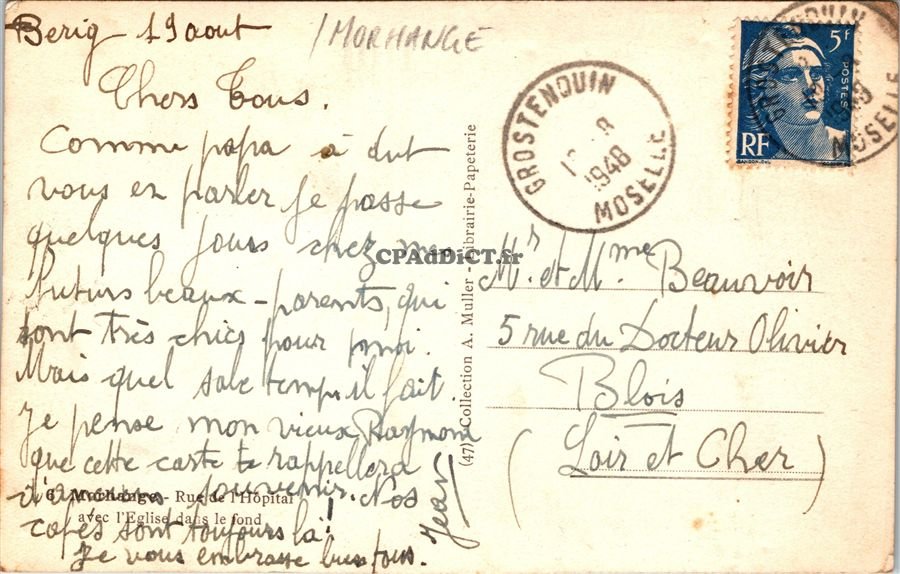 Berig 19 aout
/MORHANGE
Chers Tous.
Comme papa à dut
vous en parler je passe
quelques jours chez mes
futurs beaux-parents, qui
sont très chics pour moi.
Mais quel sale temps il fait
Je pense mon vieux Raymond
que cette carte te rappellera
d'anciens souvenirs. Nos
cafés sont toujours là!
Je vous embrasse bien tous.
Jean
6. Morhange - Rue de l'Hôpital
avec l'Eglise dans le fond
(47) Collection A. Muller - Librairie-Papeterie
CPAdDiCT.fr
GROSTENQUIN
8
1948
MOSELLE
5f
POSTES
RF
MOSELLE
Mr et Mme Beauvoir
5 rue du Docteur Olivier
Blois
(Loir et Cher)